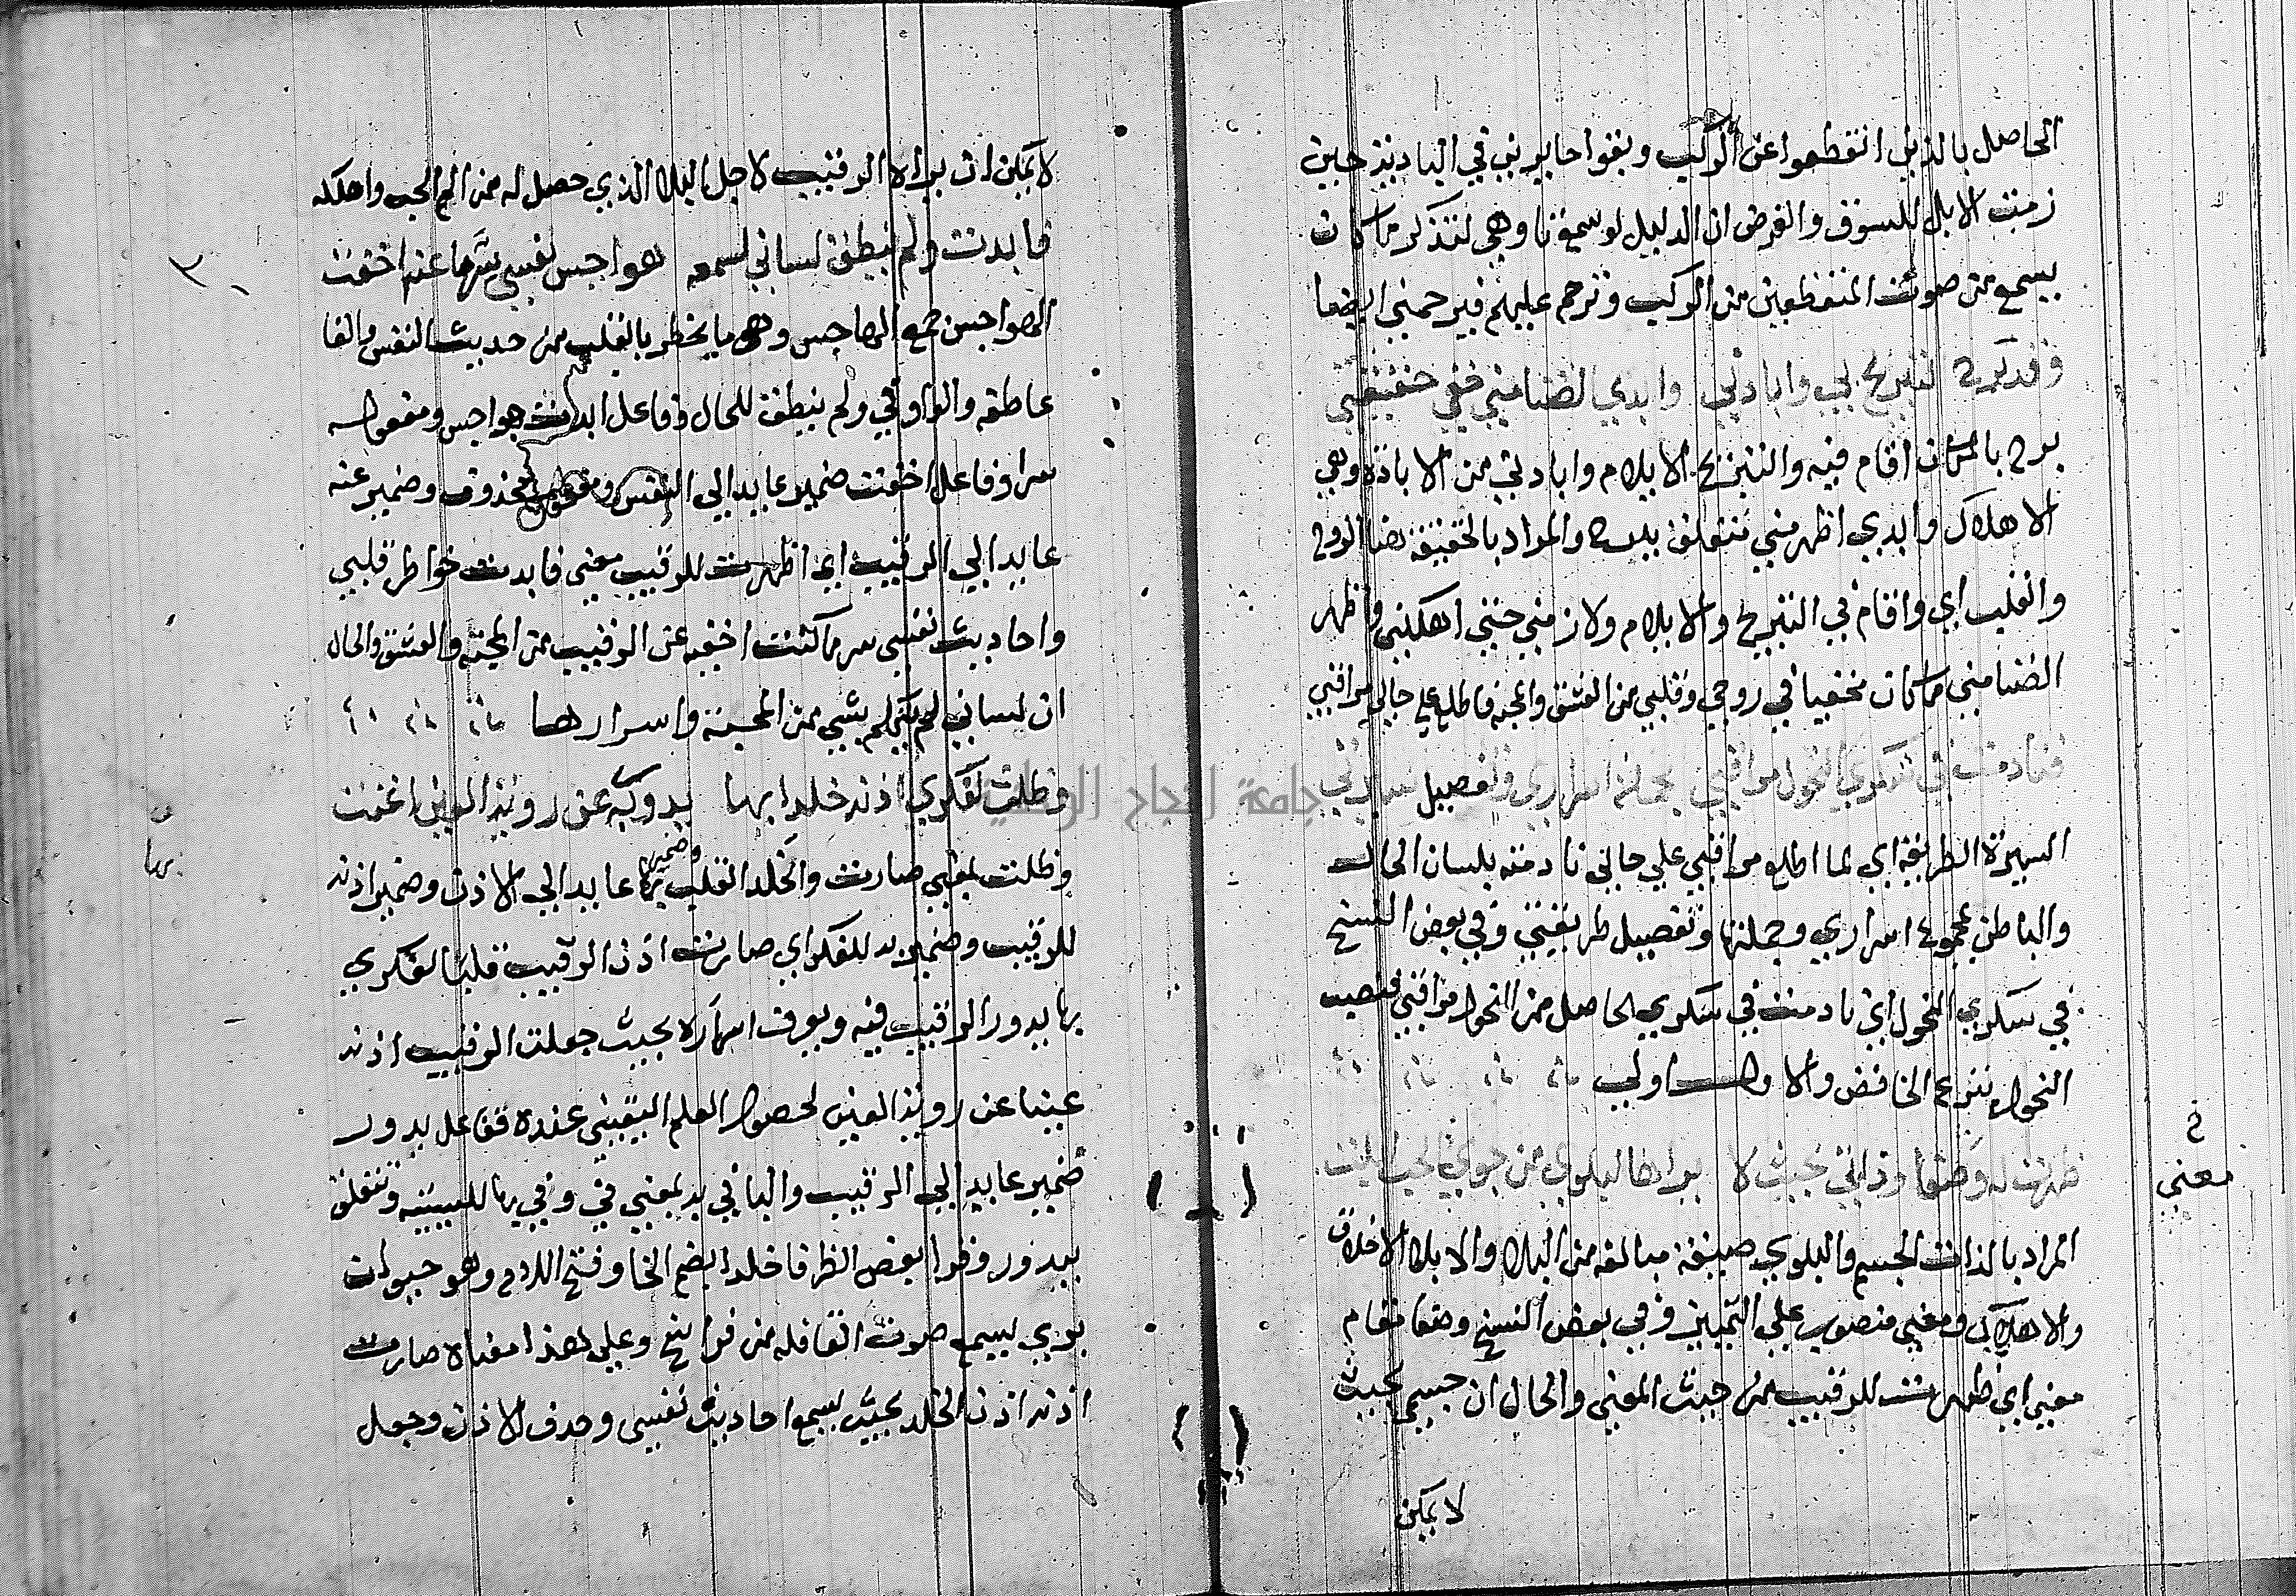 الحاصل بالذين انقطعوا عن الركب وبقوا حايرين في البادية حين
زمت الابل للسوق والغرض ان الدليل لو سمع وهي لتذكر ما كان
يسمع من صوت المنقطعين من الركب وترحم عليهم فيرحمني ايضا
وقد برح التبريح بي وابادني وابدي الضنا مني خفي حقيقتي
برح بالمكان اقام فيه والتبريح الايلام وابادني من الابادة وهي
الاهلاك وابدي اظهر مني متعلق به والمراد بالحقيقة هنا الروح
والقلب اي واقام في التبريح والايلام ولازمني حتي اهلكني واظهر
الضنا مني ما كان مخفيا في روحي وقلبي من العشق والمحبة فاطلع علي حالي مراقبي
فنادمت في سكري النحول مراقبي بجملة اسراري وتفصيل سيرتي
السيرة الطريقة اي لما اطلع مراقبي علي حالي نادمته بلسان الحال
والباطن بمجموع اسراري وجملتها وتفصيل طريقتي وفي بعض النسخ
في سكري النحول اي نادمت في سكري الحاصل من النحول مراقبي فنصب
النحول بنزع الخافض والاول اولي
ظهرت له وصفا وذاتي بحيث لا يراها لبلوي من جوي الحب ابلت
المراد بالذات الجسم والبلوي صيغة مبالغة من البلا والابلا الاخلاق
والاهلاك ومعني منصوب علي التمييز وفي بعض النسخ وصفا مقام
معني اي ظهرت للرقيب من حيث المعني والحال ان جسمي بحيث
خ
معني
لا يمكن
لا يمكن ان يراه الرقيب لاجل البلا الذي حصل له من الم الحب واهلكه
فابدت ولم ينطق لساني لسمعه هواجس نفسي سرما عنه اخفت
الهواجس جمع الهاجس وهي ما يخطر بالقلب من حديث النفس والفا
عاطفه والواو في ولم ينطق للحال وفاعل ابدت هواجس ومفعوله
سر وفاعل اخفت ضمير عايد الي النفس ومفعوله محذوف وضمير عنه
عايد الي الرقيب اي اظهرت للرقيب معني فابدت خواطر قلبي
واحاديث نفسي سر ما كنت اخفيه عن الرقيب من المحبة والعشق والحال
ان لساني لم يتكلم بشي من المحبة واسرارها
وظلت لفكري اذنه خلدا بها يدور به عن روية العين اغنت
وظلت بمعني صارت والخلد القلب وضمير بها عايد الي الاذن وضمير اذنه
للرقيب وضمير به للفكر اي صارت اذن الرقيب قلبا لفكري
بها يدور الرقيب فيه ويعرف اسراره بحيث جعلت الرقيب اذنه
عينا عن روية العين لحصول العلم اليقيني عنده ففاعل يدور
ضمير عايد الي الرقيب والبا في به بمعني في وفي بها للسببية وتتعلق
بيدور وقرا بعض الظرفا خلدا بضم الخا وفتح اللام وهو حيوان
بري يسمع صوت القافله من فراسخ وعلي هذا معناه صارت
اذنه اذن الخلد بحيث يسمع احاديث نفسي وحذف الاذن وجعل
بها